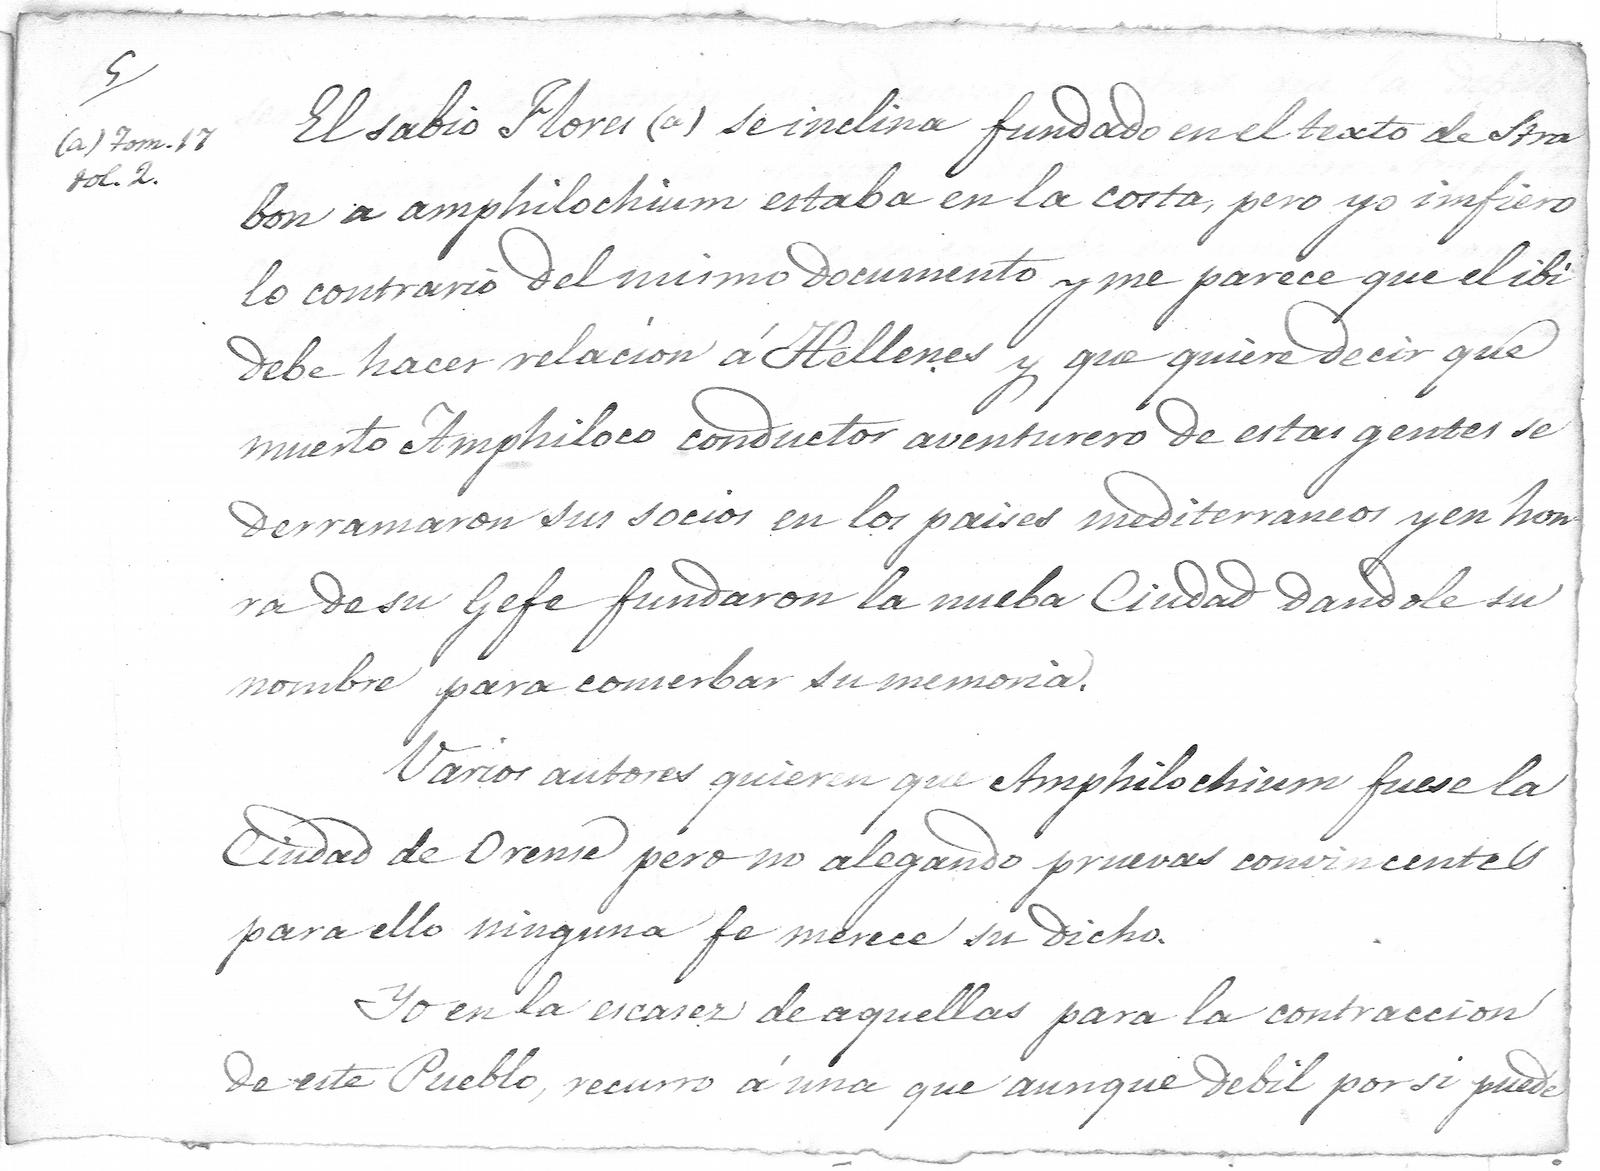 5
(a) Tom. 17
fol. 2.
El sabio Flores (a) se inclina fundado en el texto de Stra
bon a amphilochium estaba en la costa, pero yo imfiero
lo contrario del mismo documento y me parece que el ibi
debe hacer relacion á Hellenes y que quiere decir que
muerto Amphiloco conductor aventurero de estas gentes se
derramaron sus socios en los paises mediterraneos y en hon-
ra de su Gefe fundaron la nueba Ciudad dandole su
nombre para conserbar su memoria.
Varios autores quieren que Amphilochium fuese la
Ciudad de Orense pero no alegando pruevas convincentes
para ello ninguna fe merece su dicho.
Yo en la escasez de aquellas para la contraccion
de este Pueblo, recurro á una que aunque debil por si puede